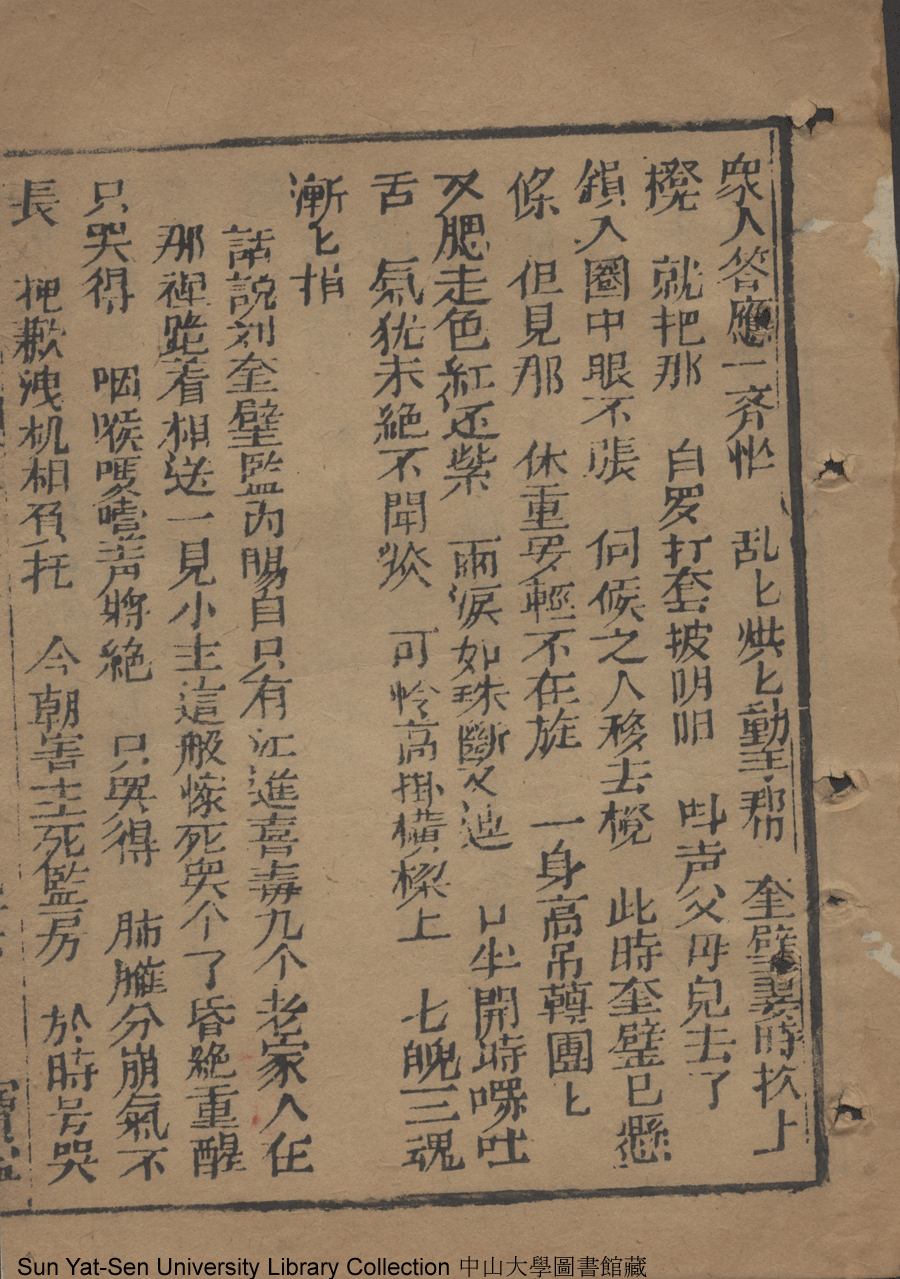 衆人答應一齐忙 乱匕烘匕動手帮 奎壁霎時扶上
櫈 就把那 自罗打套披明旧 叫声父母兒去了
鎖入圈中眼不張 伺候之人移去櫈 此時奎璧已懸
條 但見那 休重罗輕不在旋 一身高吊轉團匕
又腮走色紅还紫 両淚如珠斷又連 口半開時啰吐
舌 氣犹未絶不聞 可怜高掛横樑上 七魄三魂
漸匕捎
話說刘奎壁監内賜自只有江進喜毒九个老家人在
那裡跪着相送一見小主這般慘死哭个了昏絶重醒
只哭得 咽喉嗄噎声將絶 只哭得 肺臟分崩氣不
長 抱歉洩机相負托 今朝害主死監房 於時号哭
Sun Yat-Sen University Library Collection 中山大學圖書館藏